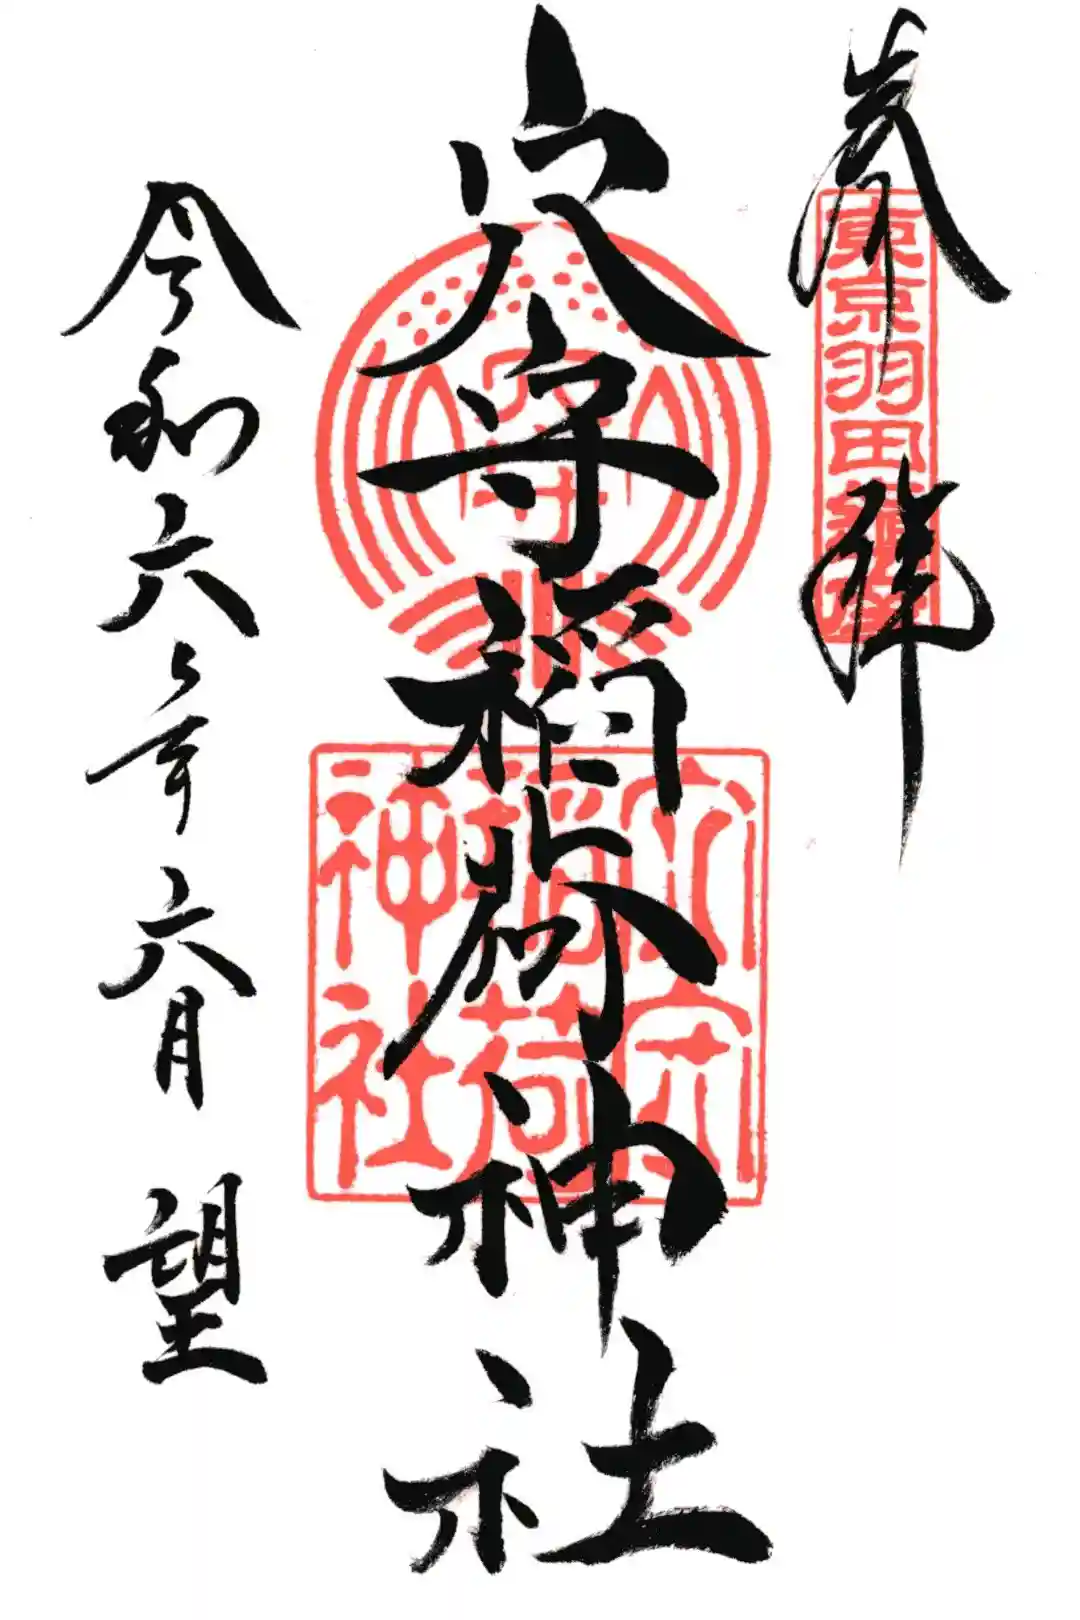 奉拝
東京羽田鎮座
穴守稲荷神社
穴守
穴守
稲荷
神社
令和六年六月 望